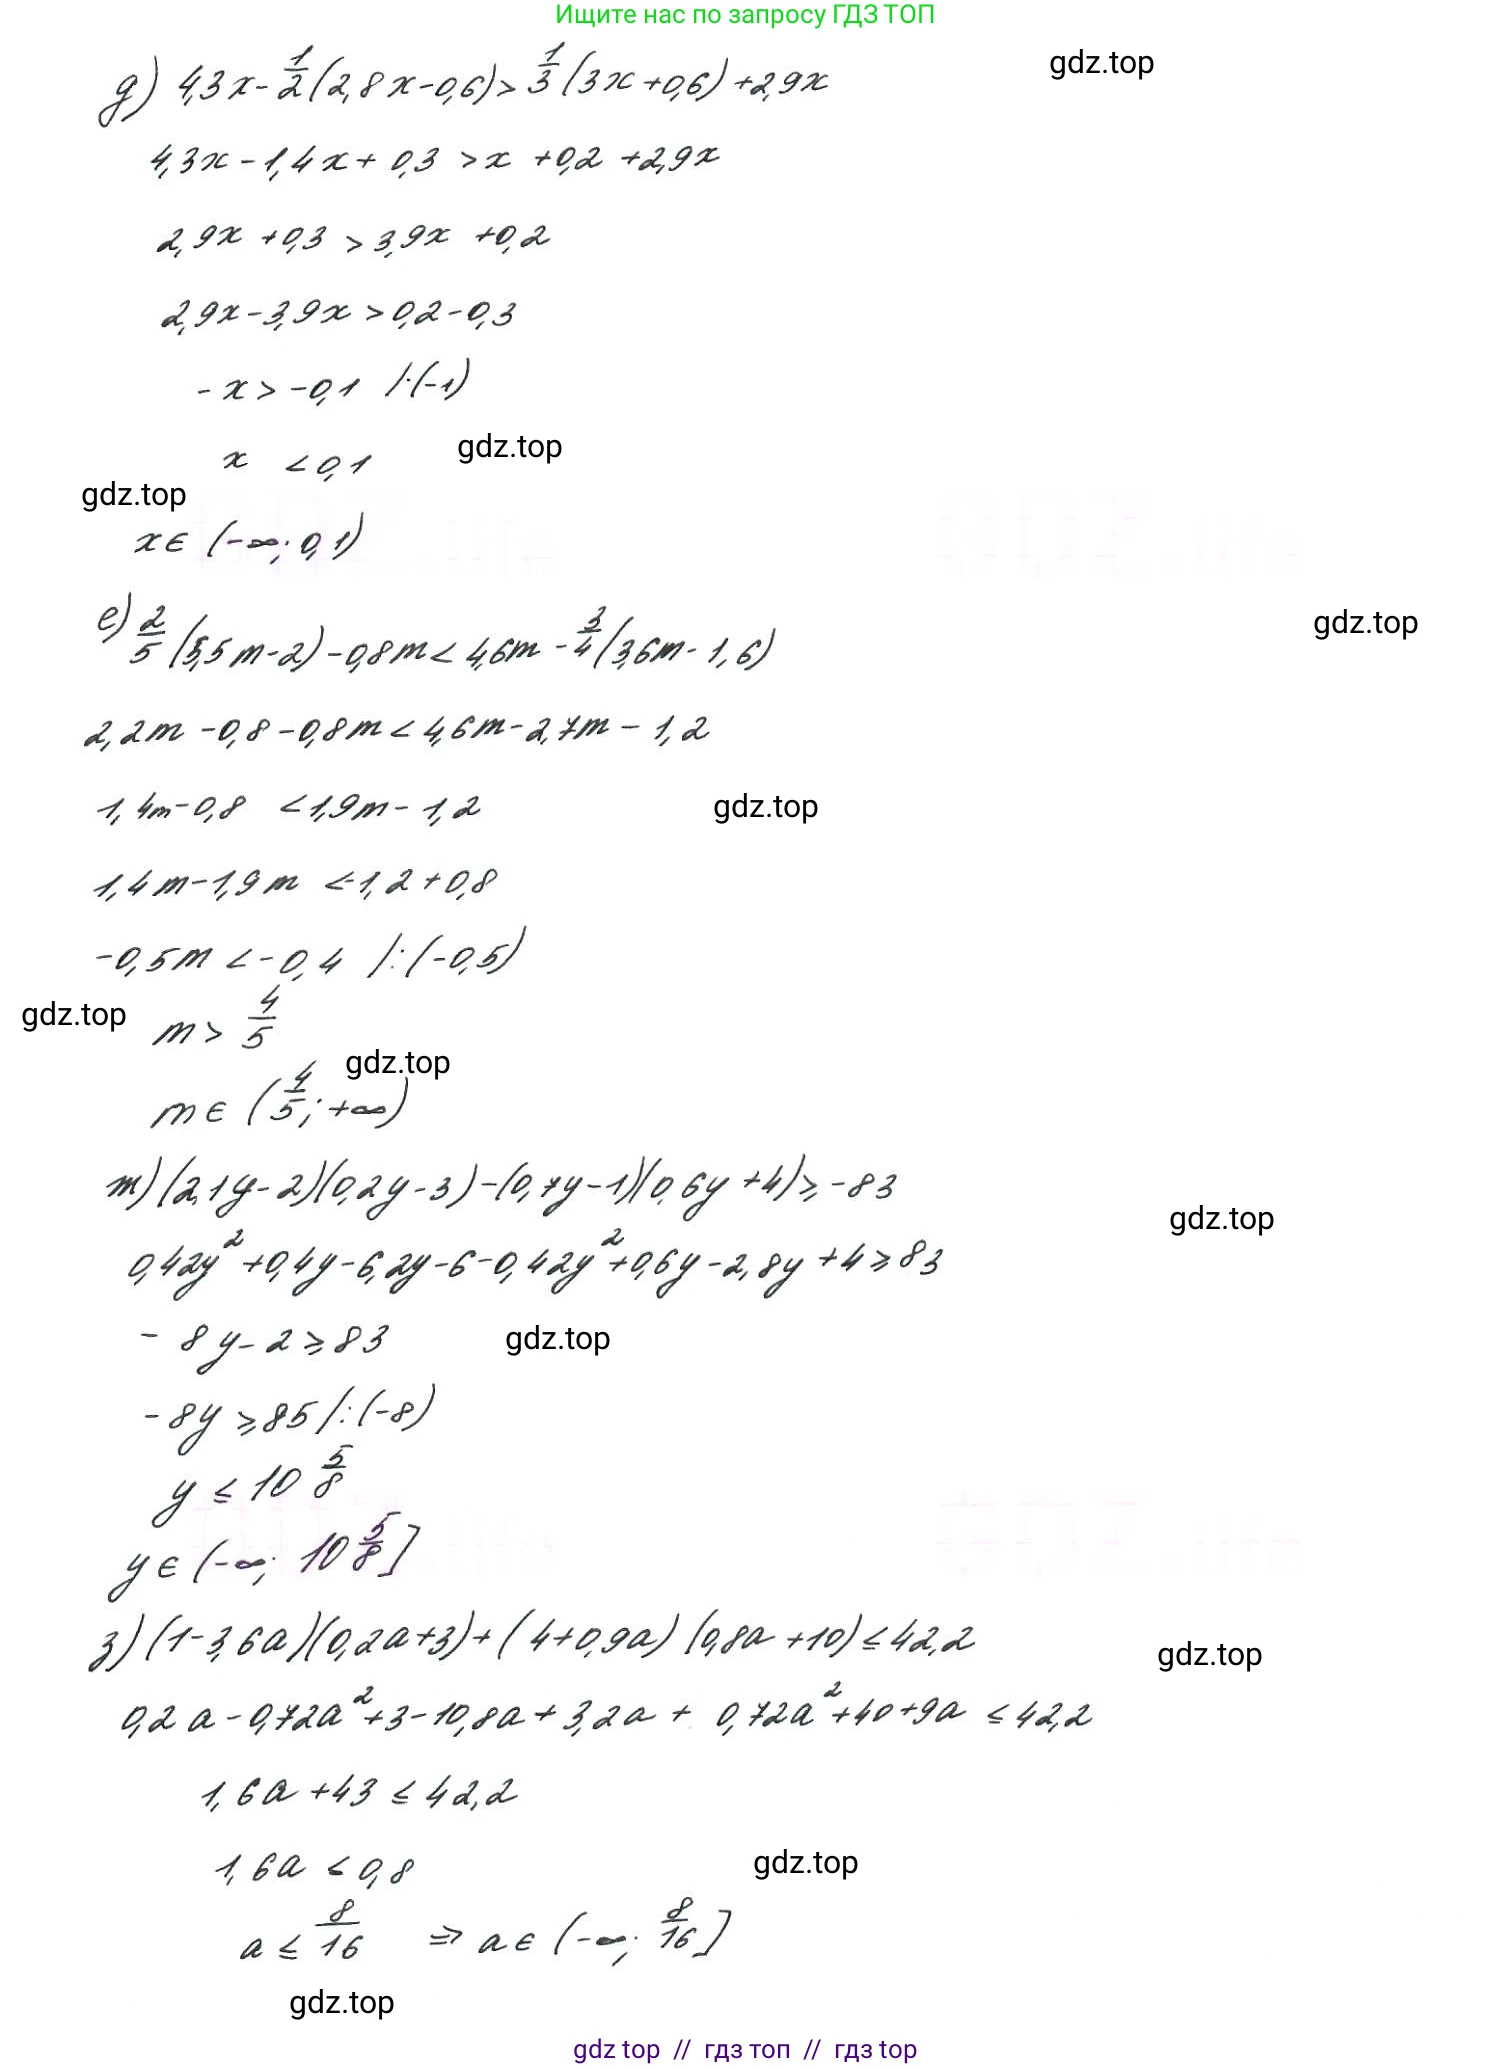 Ищите нас по запросу ГДЗ ТОП
д) 4,3x - 1/2 (2,8x - 0,6) > 1/3 (3x + 0,6) + 2,9x
gdz.top
4,3x - 1,4x + 0,3 > x + 0,2 + 2,9x
2,9x + 0,3 > 3,9x + 0,2
2,9x - 3,9x > 0,2 - 0,3
- x > -0,1 /:(-1)
x < 0,1
gdz.top
gdz.top
x ∈ (-∞; 0,1)
е) 2/5 (5,5m - 2) - 0,8m < 4,6m - 3/4 (3,6m - 1,6)
gdz.top
2,2m - 0,8 - 0,8m < 4,6m - 2,7m - 1,2
1,4m - 0,8 < 1,9m - 1,2
gdz.top
1,4m - 1,9m < -1,2 + 0,8
-0,5m < -0,4 /:(-0,5)
gdz.top
m > 4/5
gdz.top
m ∈ (4/5; +∞)
ж) (2,1y - 2)(0,2y - 3) - (0,7y - 1)(0,6y + 4) ≥ -83
gdz.top
0,42y² + 0,4y - 6,2y - 6 - 0,42y² + 0,6y - 2,8y + 4 ≥ 83
- 8y - 2 ≥ 83
gdz.top
- 8y ≥ 85 /:(-8)
y ≤ 10 5/8
y ∈ (-∞; 10 5/8]
з) (1 - 3,6a)(0,2a + 3) + (4 + 0,9a)(0,8a + 10) ≤ 42,2
gdz.top
0,2a - 0,72a² + 3 - 10,8a + 3,2a + 0,72a² + 40 + 9a ≤ 42,2
1,6a + 43 ≤ 42,2
1,6a < 0,8
gdz.top
a ≤ 8/16 ⇒ a ∈ (-∞; 8/16]
gdz.top
gdz top // гдз топ // гдз top